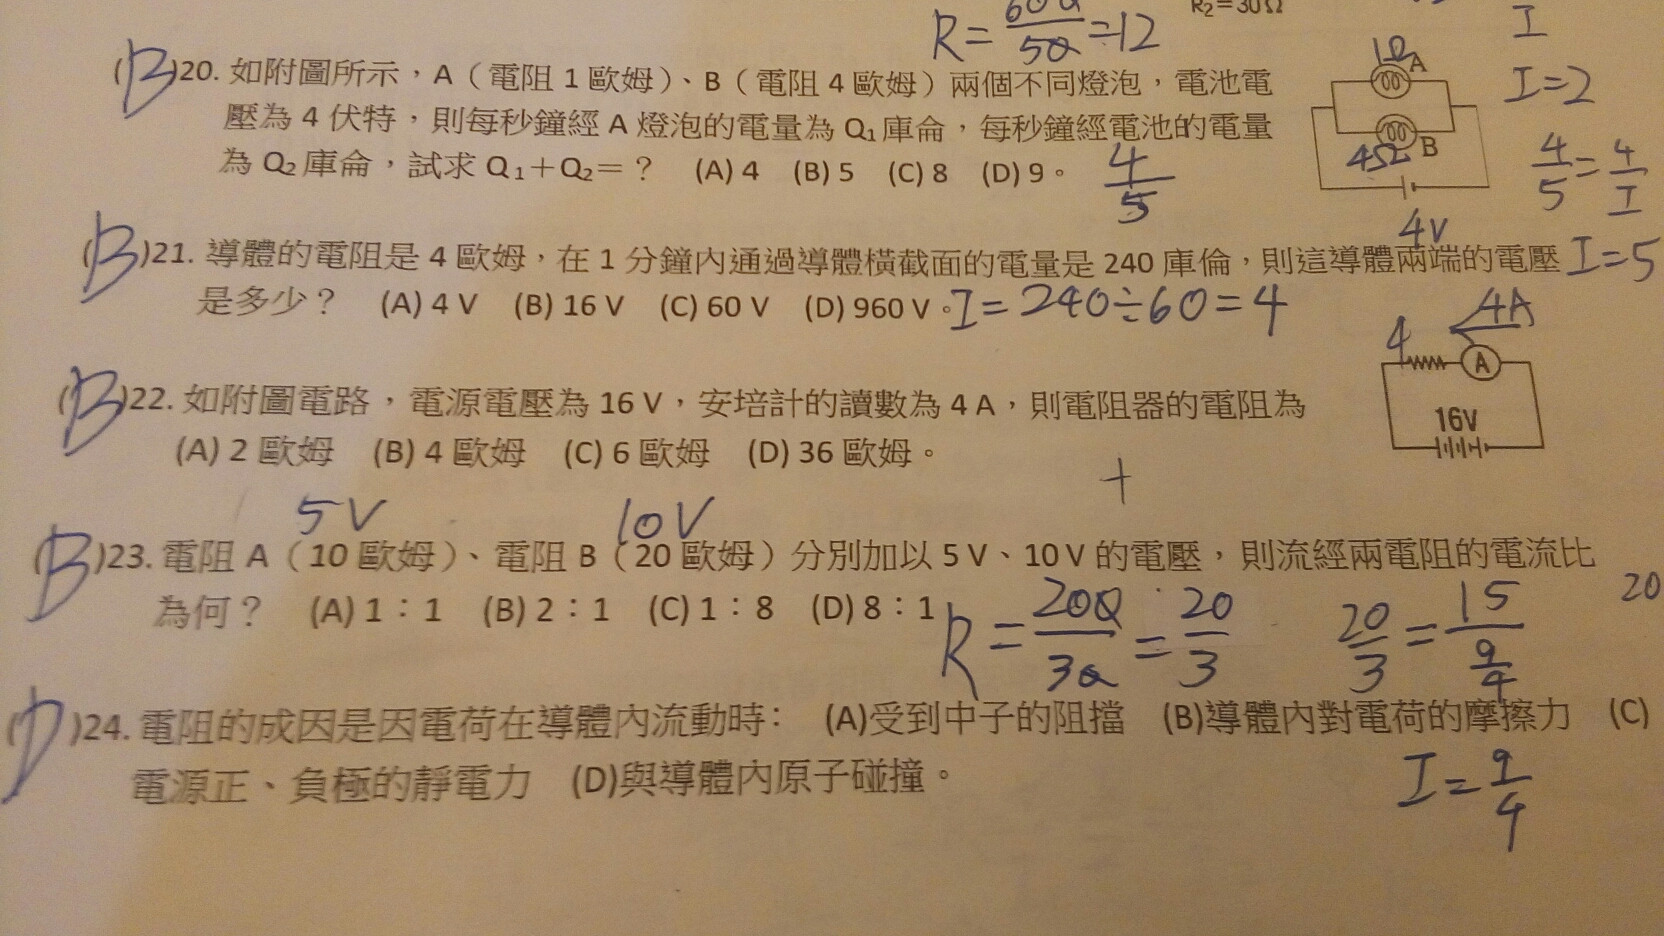 R = 600/50 = 12
R₂=30Ω
I
(B)20. 如附圖所示，A（電阻 1 歐姆）、B（電阻 4 歐姆）兩個不同燈泡，電池電
壓為 4 伏特，則每秒鐘經 A 燈泡的電量為 Q₁ 庫侖，每秒鐘經電池的電量
為 Q₂ 庫侖，試求 Q₁＋Q₂＝？ (A) 4 (B) 5 (C) 8 (D) 9。
4/5
1Ω A
4Ω B
4V
I=2
4/5 = 4/I
I=5
(B)21. 導體的電阻是 4 歐姆，在 1 分鐘內通過導體橫截面的電量是 240 庫倫，則這導體兩端的電壓
是多少？ (A) 4 V (B) 16 V (C) 60 V (D) 960 V。 I=240÷60=4
(B)22. 如附圖電路，電源電壓為 16 V，安培計的讀數為 4 A，則電阻器的電阻為
(A) 2 歐姆 (B) 4 歐姆 (C) 6 歐姆 (D) 36 歐姆。
4 4A
A
16V
+
5V 10V
(B)23. 電阻 A（10 歐姆）、電阻 B（20 歐姆）分別加以 5 V、10 V 的電壓，則流經兩電阻的電流比
為何？ (A) 1：1 (B) 2：1 (C) 1：8 (D) 8：1
20/3 = 15/(9/4)
20
(D)24. 電阻的成因是因電荷在導體內流動時： (A)受到中子的阻擋 (B)導體內對電荷的摩擦力 (C)
電源正、負極的靜電力 (D)與導體內原子碰撞。
I=9/4